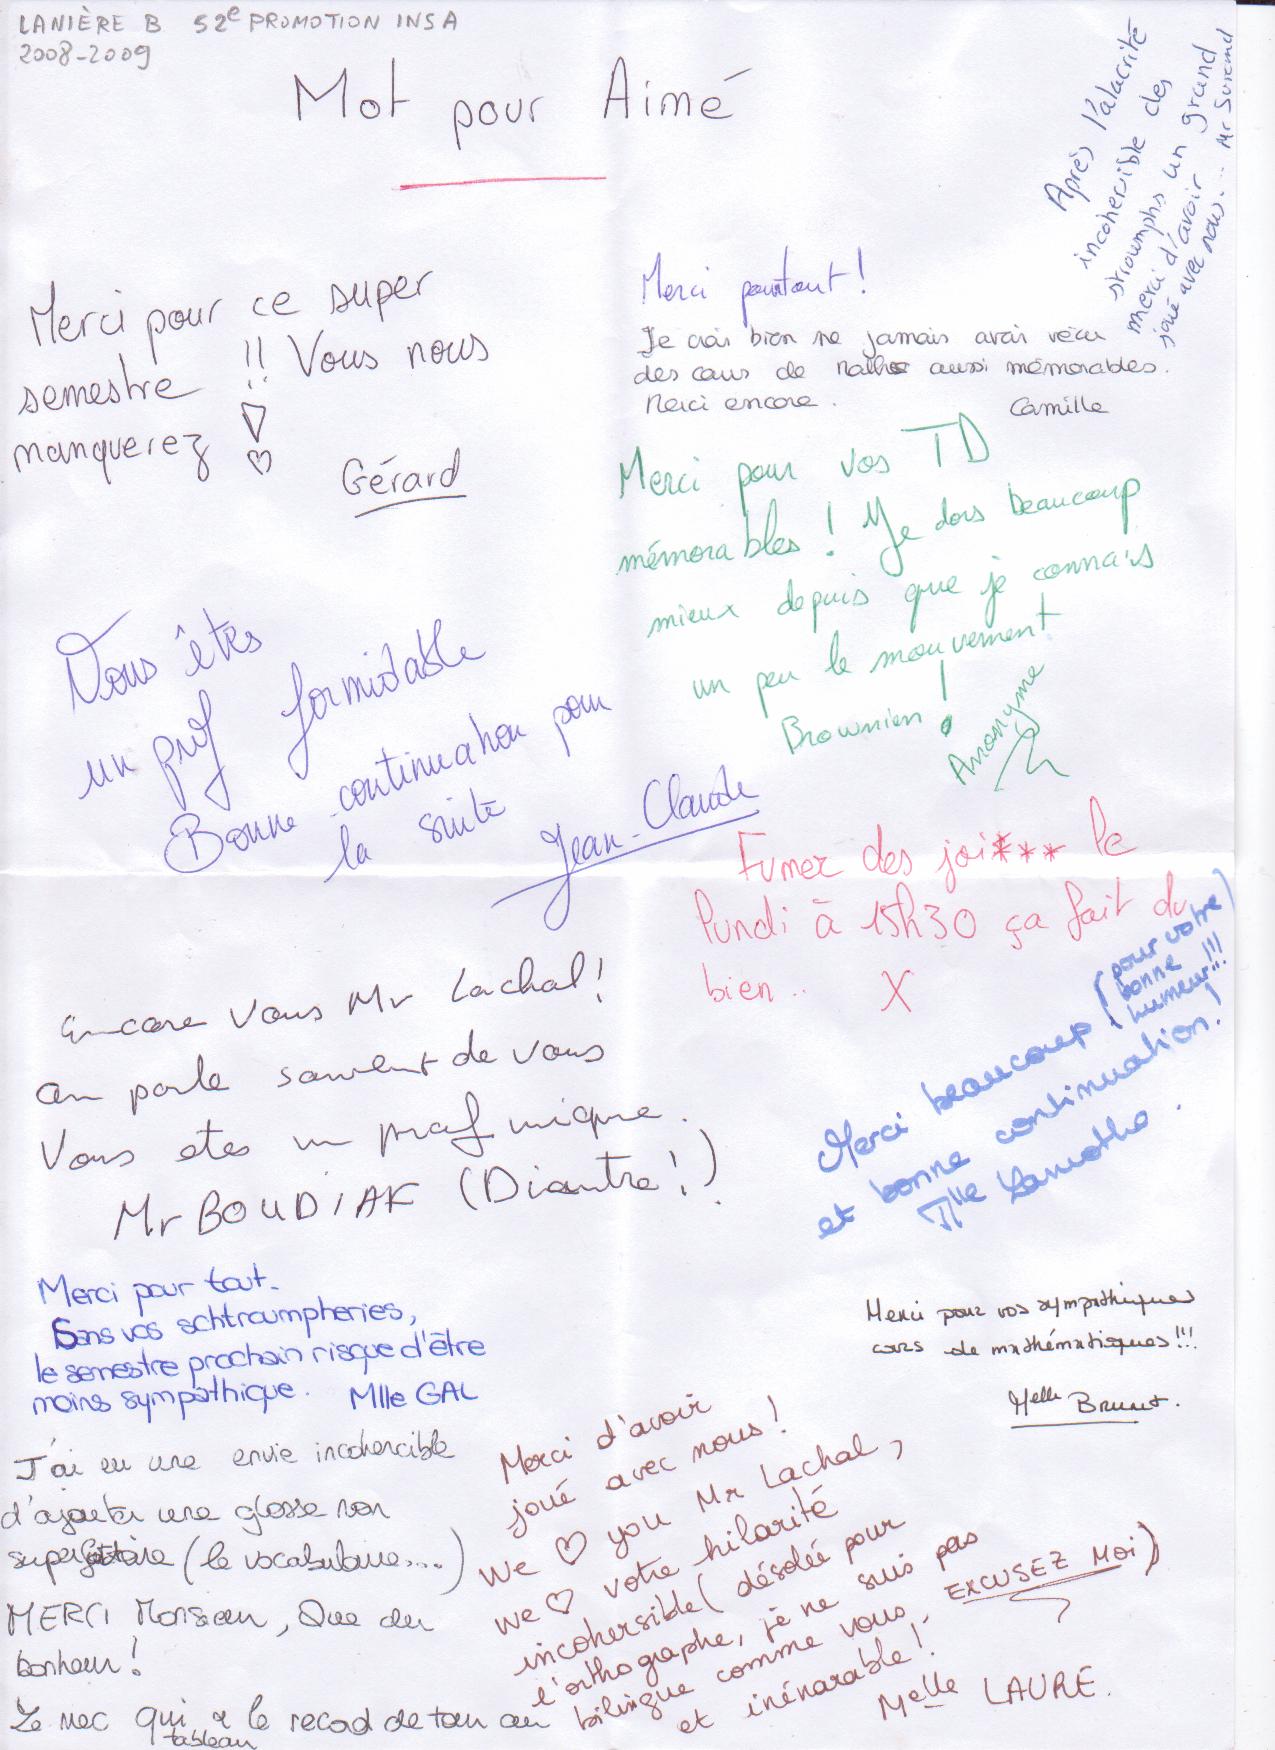 LANIÈRE B 52e PROMOTION INSA
2008-2009
Mot pour Aimé
Après l'alacrité
incohersible des
stroumphs un grand
merci d'avoir
joué avec nous...
Merci pour ce super
semestre !! Vous nous
manquerez ! ♡
Gérard
Merci pourtout !
Je crois bien ne jamais avoir vécu
des cours de maths aussi mémorables.
Merci encore.
Camille
Merci pour vos TD
mémorables ! Je dors beaucoup
mieux depuis que je connais
un peu le mouvement
Brownien !
Anonyme
Vous êtes
un prof formidable
Bonne continuation pour
la suite
Jean-Claude
Fumer des joi*** le
lundi à 15h30 ça fait du
bien.. X
Encore vous Mr Lachal !
on parle souvent de vous
Vous etes un prof unique.
Mr BOUDIAF (Diantre !)
Merci beaucoup (pour votre
bonne
humeur!!!)
et bonne continuation !
Mlle Lamotho.
Merci pour tout.
Sans vos schtroumpheries,
le semestre prochain risque d'être
moins sympathique. Mlle GAL
Merci pour vos sympathiques
cours de mathématiques!!!
Melle Brunet.
J'ai eu une envie incohercible
d'ajouter une glosse non
superfétatoire (le vocabulaire....)
MERCI Monsieur, Que du
bonheur !
Le mec qui a le record de tour au
tableau
Merci d'avoir
joué avec nous !
We ♡ you Mr Lachal,
we ♡ votre hilarité
incohersible (désolée pour
l'orthographe, je ne suis pas
bilingue comme vous, EXCUSEZ MOI)
et inénarable !
Melle LAURE.